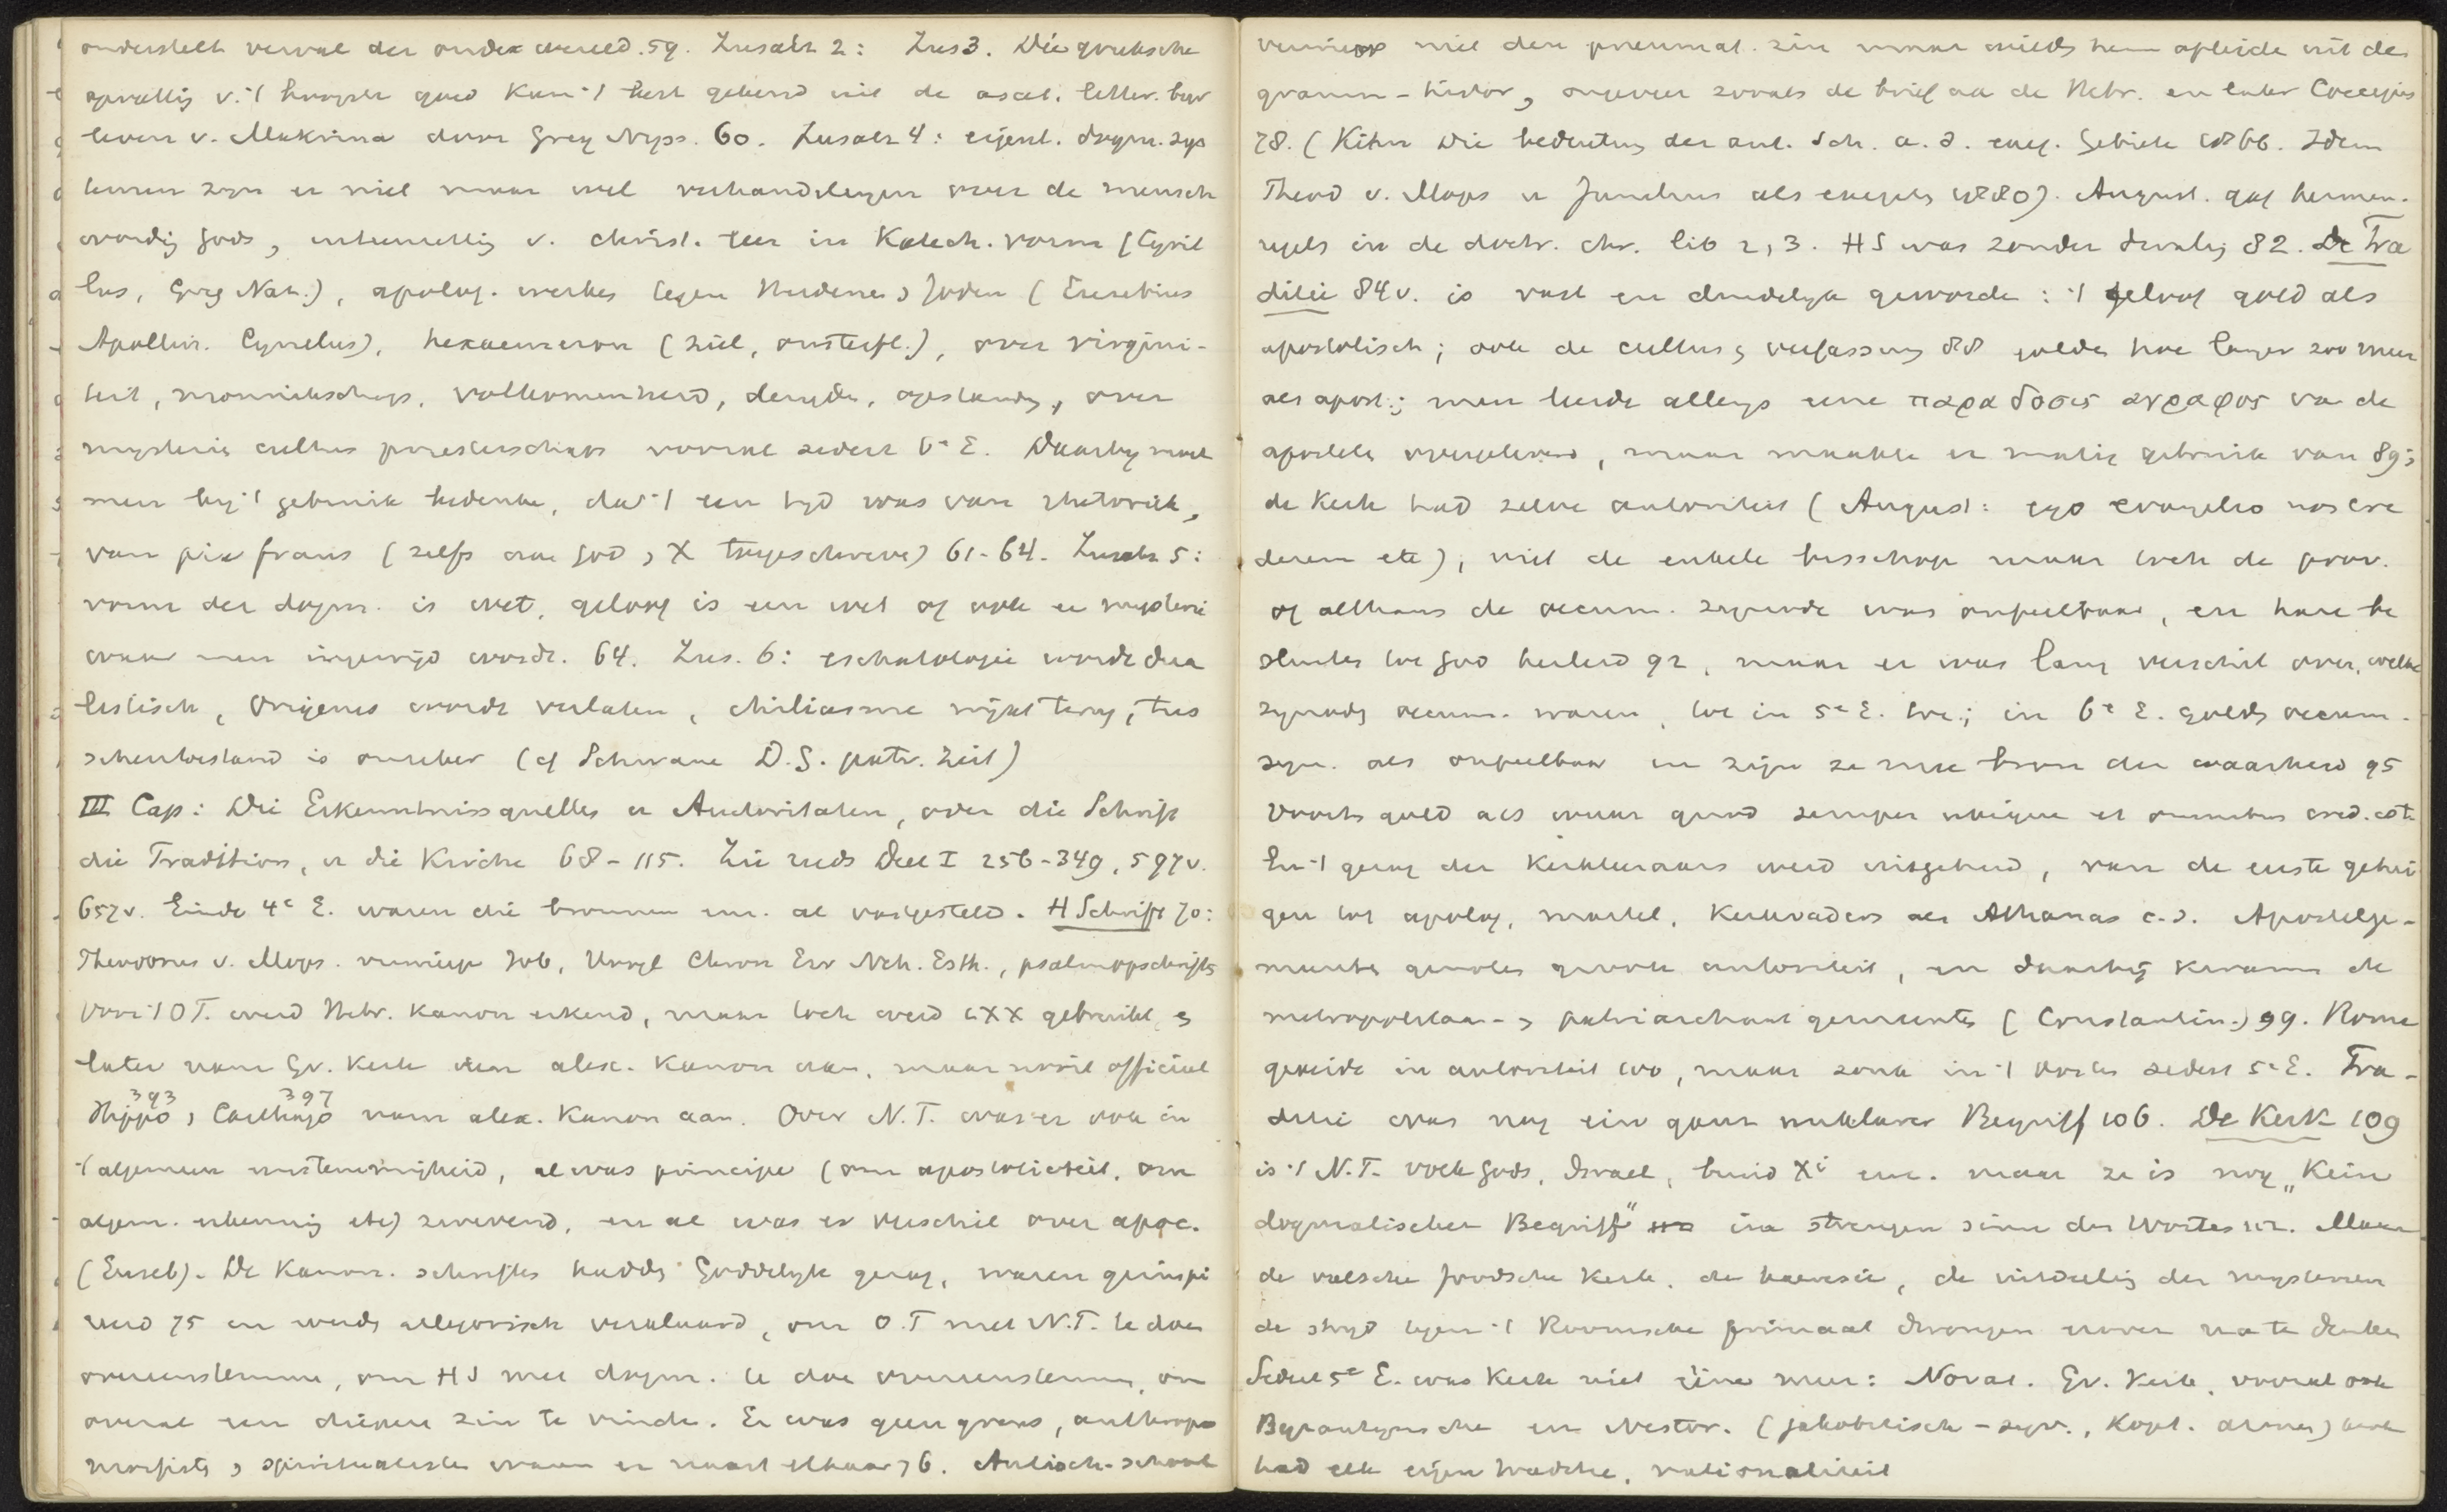 onderstelt verval der oude wereld. 59. Zusatz 2: Zus 3. Die grieksche
opvattig v. 't hoogste goed kan 't best gekend uit de ascet. letter. bijv
leven v. Makrina door Greg Nyss. 60. Zusatz 4: eigenl. dogm. sys
temen zijn er niet maar wel verhandelingen over de mensch
wordig Gods, uiteenzettig v. christ. leer in Katech. vorm (Cyril
lus, Greg Naz.), apolog. werkes tegen Heidenen & Joden (Eusebius
Apollin. Cyrillus), hexaemeron (ziel, onsterfl.), over virgini-
teit, monnikschap, volkomenheid, deugden, opstandg, over
mysteriën cultus priesterschap vooral sedert 6e E. Daarbij moet
men bij 't gebruik bedenken, dat 't een tijd was van rhetoriek,
van pia fraus (zelfs aan God & X toegeschreven) 61-64. Zusatz 5:
vorm der dogm. is wet, geloof is een wet of ook een mysterie
waar men ingewijd wordt. 64. Zus. 6: eschatologie wordt dua
listisch, Origenes wordt verlaten, chiliasme wijkt terug, tus
schentoestand is onzeker (cf Schwane D.G. patr. Zeit)
III Cap: Die Erkenntnissquellen u Autoritaten, oder die Schrift
die Tradition, u die Kirche 68-115. Zie reeds Deel I 256-349, 597v.
657v. Einde 4e E. waren die bronnen enz. al vastgesteld. H Schrift 70:
Theodorus v. Mops. verwierp Job, Hoogl Chron Ezr Neh. Esth., psalmopschriften
Voor 't OT. werd Hebr. kanon erkend, maar toch werd LXX gebruikt, &
later nam Gr. Kerk den alex. kanon aan, maar nooit officieel
Hippo 393 & Carthago 397 nam alex. kanon aan. Over N.T. was er ook in
't algemeen eenstemmigheid, al was principe (om apostoliciteit, om
algem. erkennig etc) zwevend, en al was er verschil over apoc.
(Euseb). De kanon. schriften hadden Goddelijk gezag, waren geinspi
reerd 75 en werden allegorisch verklaard, om O.T met N.T. te doen
overeenstemmen, om HS met dogm. te doen overeenstemmen, om
overal een dieperen zin te vinden. Er was geen grens, anthropo
morfisten & spiritualisten waren er naast elkaar 76. Antioch. school
verwierp niet den pneumat. zin maar wilde hem afleiden uit de
gramm-histor, ongeveer zooals de brief aan de Hebr. en later Coccejus
78. (Kihn Die bedeutung der ant. Sch. a. d. exeg. Gebiete 1866. Idem
Theod v. Mops u Junilius als exegeten 1880). August. gaf hermen.
regels in de doctr. chr. lib 2, 3. HS was zonder dwaling 82. De Tra
ditie 84v. is vast en duidelijk geworden: 't geloof gold als
apostolisch; ook de cultus & verfassung 88 golden hoe langer zoo meer
als apost.; men leerde allengs eene παραδοσις αγραφος van de
apostelen overgeleverd, maar maakte er matig gebruik van 89;
de Kerk had zelve autoriteit (August: ego evangelio non cre
derem etc), niet de enkele bisschop maar toch de prov.
of althans de oecum. synode was onfeilbaar, en hare be
sluiten tot God herleid 92, maar er was lang verschil over, welke
synoden oecum. waren, tot in 5e E. toe; in 6e E. golden oecum.
syn. als onfeilbaar en zijn ze eene bron der waarheid 95
Voorts gold als waar quod semper ubique et omnibus cred. est
En 't gezag der kerkleraars werd uitgebreid, van de eerste getui
gen tot apolog, martel, kerkvaders als Athanas e.a. Apostelge-
meenten genoten groote autoriteit, en daarbij kwamen de
metropolitaan- & patriarchaat gemeenten (Constantin.) 99. Rome
geneide in autoriteit toe, maar zonk in 't Oosten sedert 5e E. Tra-
ditie was nog ein ganz unklarer Begriff 106. De Kerk 109
is 't N.T. volk Gods, Israel, bruid Xi enz. maar ze is nog „Kein
dogmatischer Begriff" im strengen sinne des Wortes 112. Maar
de valsche Joodsche Kerk, de haeresie, de uitdeelig der mysteriën
de strijd tegen 't Roomsche primaat drongen erover na te denken
Sedert 5e E. was Kerk niet eine meer: Novat. Gr. Kerk, vooral ook
Byzantijnsche en Nestor. (jakobitisch-syr., Kopt. armen) kerk
had elk eigen traditie, nationaliteit